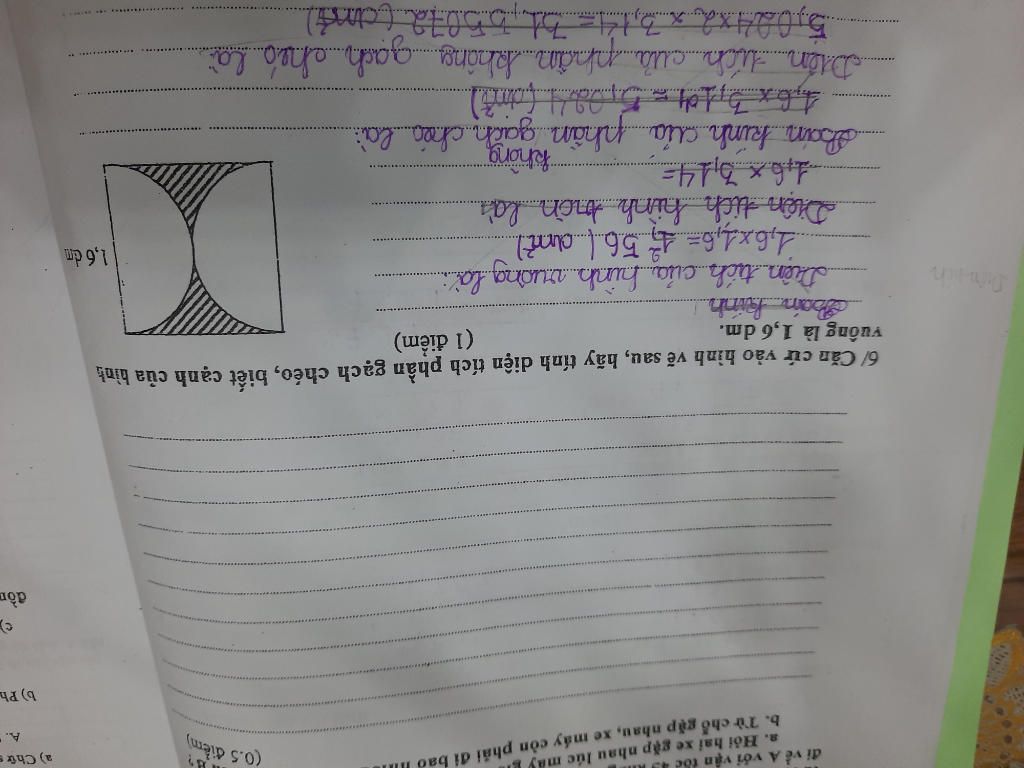 đi về A với vận tốc 45
a. Hỏi hai xe gặp nhau lúc mấy
b. Từ chỗ gặp nhau, xe máy còn phải đi bao
(0.5 điểm)
6/ Căn cứ vào hình vẽ sau, hãy tính diện tích phần gạch chéo, biết cạnh của hình
vuông là 1,6 dm. (1 điểm)
Bán kính
Diện tích của hình vuông là:
1,6 x 1,6 = 2,56 (dm²)
Diện tích hình tròn là:
1,6 x 3,14 =
Bán kính của phần không gạch chéo là:
1,6 x 3,14 = 5,024 (dm²)
Diện tích của phần không gạch chéo là:
5,024 x 2 x 3,14 = 31,55072 (dm²)
1,6 dm
a) Chữ s
A.
b) Ph
c)
đồn
Diện tích